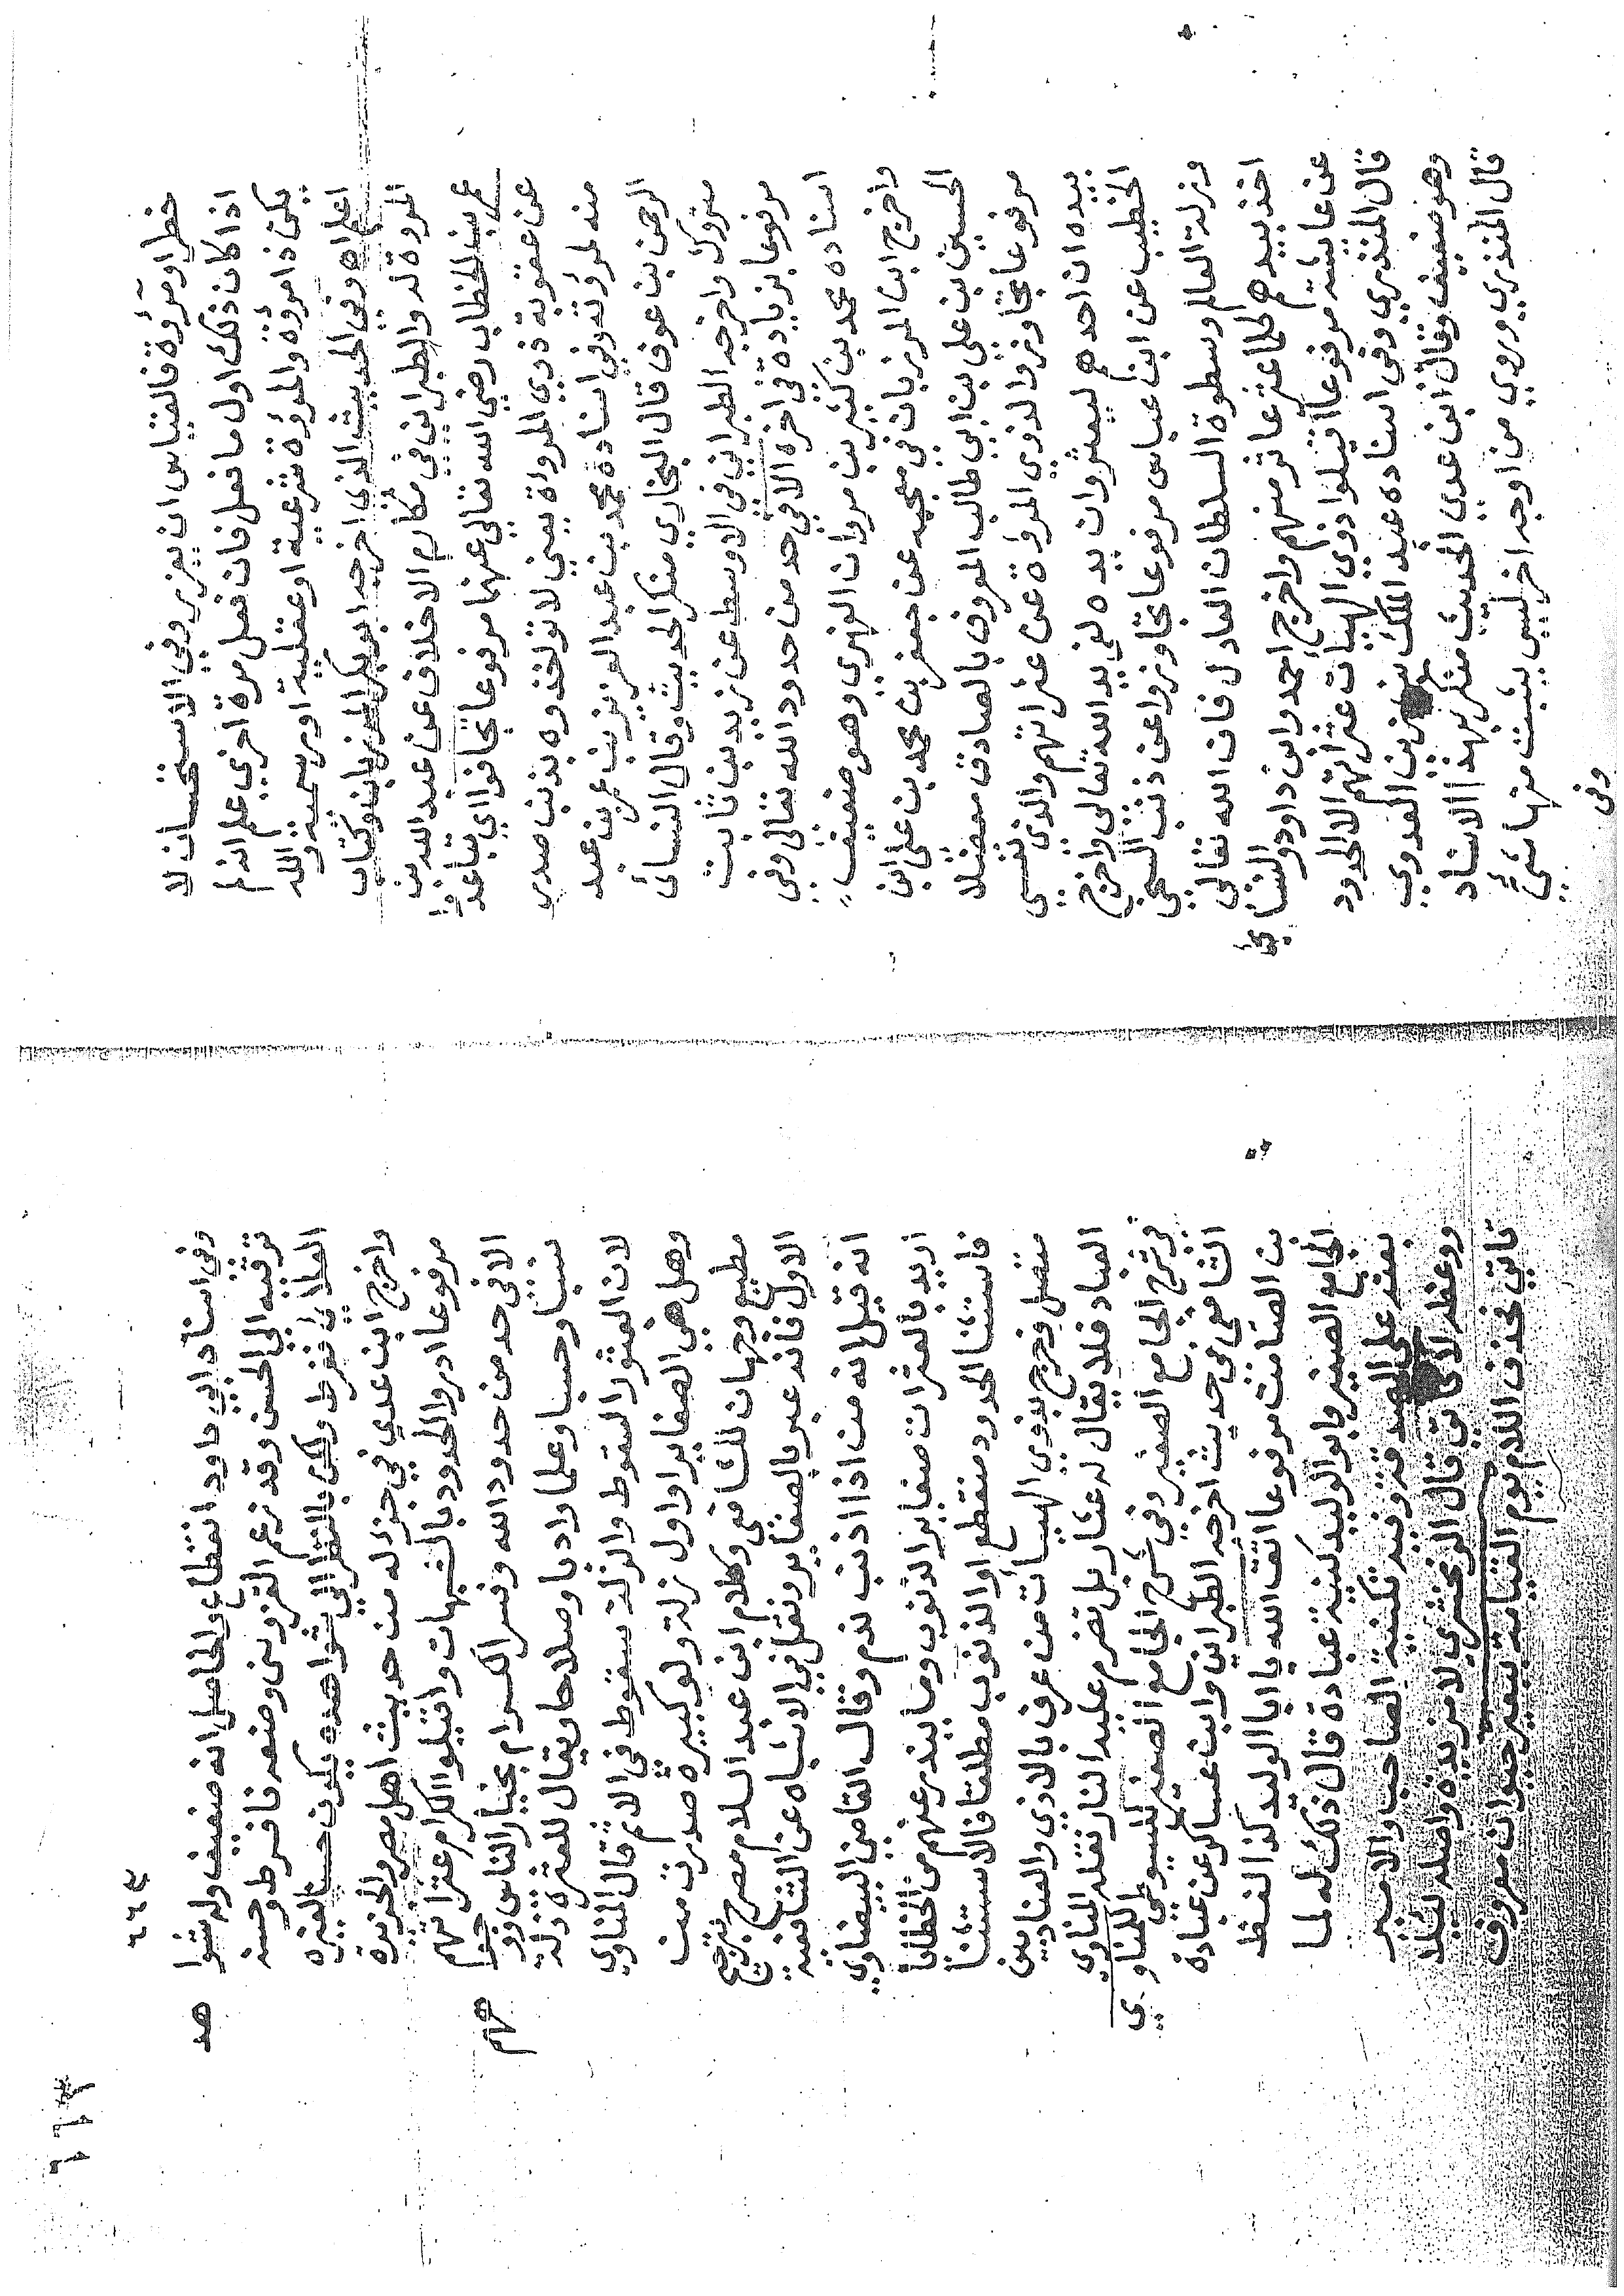 خطر او مروة فالقياس ان يعزر وفي الاستحسان لا
اذا كان ذلك اول ما فعل فان فعل مرة اخري علم انه لم
يكن ذا مروة والمروة شرعية او عقلية او رسمية والله
اعلم اه وفي الحديث الذي اخرجه ابو بكر المرزبان في كتاب
المروة له والطبراني في مكارم الاخلاق عن عبد الله بن
عمر بن الخطاب رضي الله تعالي عنهما مرفوعا تجافوا اي تباعدوا
عن عقوبة ذوي المرواة يعني لا تؤاخذوه بذنب صدر
منه لمروته وفي اسناده محمد بن عبد العزيز بن عمر بن عبد
الرحمن بن عوف قال البخاري منكر الحديث وقال النسائ
متروك واخرجه الطبراني في الاوسط عن زيد بن ثابت
مرفوعا بزيادة في اخره الا في حد من حدود الله تعالي وفي
اسناده محمد بن كثير بن مروان الفهري وهو ضعيف
واخرج ابن المرزبان في معجمه عن جعفر بن محمد بن علي ابن
الحسين بن علي بن ابي طالب المعروف بالصادق معضلا
مرفوعا تجاوزوا لذوي المروأة عن عثراتهم والذي نفسي
بيده ان احدهم ليعثر وان يده لفي يد الله تعالي واخرج
الخطيب عن ابن عباس مرفوعا تجاوزوا عن ذنب السخي
وزلة العالم وسطوة السلطان العادل فان الله تعالي
اخذ بيدهم كلما عثر عاثر منهم واخرج احمد وابو داود والنسائي
عن عايشة مرفوعا اقيلوا ذوي الهيات عثراتهم الا الحدود
قال المنذري وفي اسناده عبد الملك بن زيد العدوي
وهو ضعيف وقال ابن عدي الحديث منكر بهذا الاسناد
قال المنذري وروي من اوجه اخر ليس يثبت منها شئ
وفي
٢٦٩
وفي اسناد ابي داود انقطاع والحاصل انه ضعيف وله شوا
هد
ترقيه الي الحسن وقد زعم القزويني وضعه فافرط وحسنه
العلائي ففرط ولكن بالنظر الي شواهده يكون حسنا لغيره
واخرج ابن عدي في جزء له من حديث اهل مصر والجزيرة
مرفوعا ادروا الحدود بالشبهات واقيلوا الكرام عثراتهم
الا في حد من حدود الله وفسر الكرام بخيار الناس ووجو
ههم
نسبا وحسبا وعلما وادبا وصلاحا ويقال للعثرة زلة
لان العثور السقوط والزلة سقوط في الاثم قال المناوي
وهل هي الصغاير او اول زلة ولو كبيرة صدرت من
مطيع وجهان للشافعي وكلام ابن عبد السلام مصرح بترجيح
الاول فانه عبر بالصغاير ونقل في الاشباه عن الشافعية
انه قيل انه من اذا اذنب ندم وقال القاضي البيضاوي
اريد بالعثرات صغاير الذنوب وما يندر عنهم من الخطايا
فاستثنا الحدود منقطع او الذنوب مطلقا فالاستثنأ
متصل وخرج بذوي الهيبات من عرف بالاذي والعناد بين
العباد فلا يقال له عثار بل تضرم عليه النار نقله المناوي
في شرح الجامع الصغير وفي شرح الجامع الصغير للسيوطي للمناوي
الشافعي في حديث اخرجه الطبراني وابن عساكر عن عبادة
بن الصامت مرفوعا اتق الله يا ابا الوليد كذا لفظ
الجامع الصغير وابو الوليد كنية عبادة قال ذلك له لما
بعثه علي الصدقة وفيه تكنية الصاحب والامير
ووعظه لا تاتي قال الزمخشري لا مزيدة واصله ليلا
تاتي فحذف اللام يوم القيامة ببعير حيوان معروف